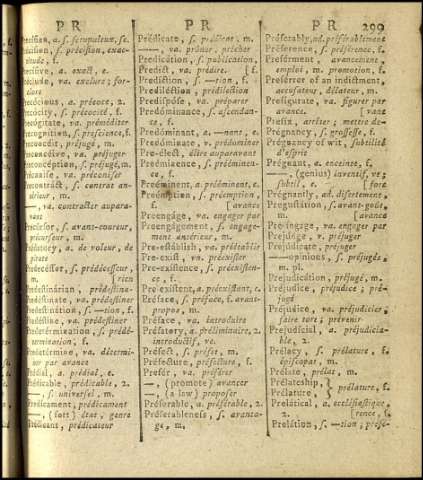 PR PR PR 299
Précision, s. précision, exac-
titude, f.
a. exact, e.
va. exclure; for-
clore
a. précoce, 2.
s. précocité, f.
va. préméditer
s. prescience, f.
préjugé, m.
va. préjuger
s. préjugé, m.
va. prévoir
s. contrat an-
térieur, m.
—, va. contracter aupara-
vant
s. avant-coureur,
précurseur, m.
a. de voleur, de
pirate
s. prédécesseur,
m. [rien
Predestinárian, prédestina-
va. prédestiner
s. —tion, f.
va. prédestiner
s. prédé-
termination, f.
va. détermi-
ner par avance
a. prédial, e.
Prédicable, prédicable, 2.
—, s. universel, m.
Predícament, prédicament
—, (sort) état, genre
prédicateur
Prédicate, s. prédicat, m.
—, va. prôner, prêcher
Predicátion, s. publication,
Predíct, va. prédire. [f.
Predíction, s. —tion, f.
Predilection, prédilection
Predispóse, va. préparer
Predóminance, s. ascendan-
te, f.
Predóminant, a. —nant, e.
Predóminate, v. prédominer
Pre-eléct, élire auparavant
Preéminence, s. prééminen-
ce, f.
Preéminent, a. prééminent, e.
Preémption, s. préemption,
f. [avance
Preengáge, va. engager par
Preengágement, s. engage-
ment antérieur, m.
Pre-estáblish, va. préétablir
Pre-exíst, va. préexister
Pre-existence, s. préexisten-
ce, f.
Pre-existent, a. préexistant, e.
Préface, s. préface, f. avant-
propos, m.
Préface, va. introduire
Préfatory, a. préliminaire, 2.
introductif, ve.
Préfect, s. préfet, m.
Préfecture, préfecture, f.
Prefér, va. préférer
—, (promote) avancer
—, (a law) proposer
Préferable, a. préférable, 2.
Préferableness, s. avanta-
ge, m.
Préferably, ad. préférablement
Préference, s. préférence, f.
Preférment, avancement,
emploi, m. promotion, f.
Preférrer of an indictment,
accusateur, délateur, m.
Prefígurate, va. figurer par
avance. [vant
Prefíx, arrêter; mettre de-
Prégnancy, s. grossesse, f.
Prégnancy of wit, subtilité
d'esprit
Prégeant, a. enceinte, f.
—, (genius) inventif, ve;
subtil, e. [force
Prégnantly, ad. disertement,
Pregustátion, s. avant-goût,
m. [avance
Pre-ingáge, va. engager par
Prejúge, v. préjuger
Prejúdicate, préjuger
—opinions, s. préjugés,
m. pl.
Prejudicátion, préjugé, m.
Préjudice, préjudice; pré-
jugé
Préjudice, va. préjudicier,
faire tort; prévenir
Prejudícial, a. préjudicia-
ble, 2.
Prélacy, s. prélature, f.
épiscopat, m.
Prélate, prélat, m.
Prélateship,
Prélature, } prélature, f.
Prelátical, a. ecclésiastique,
2. [rence, f.
Prelátion, s. —tion; préfé-